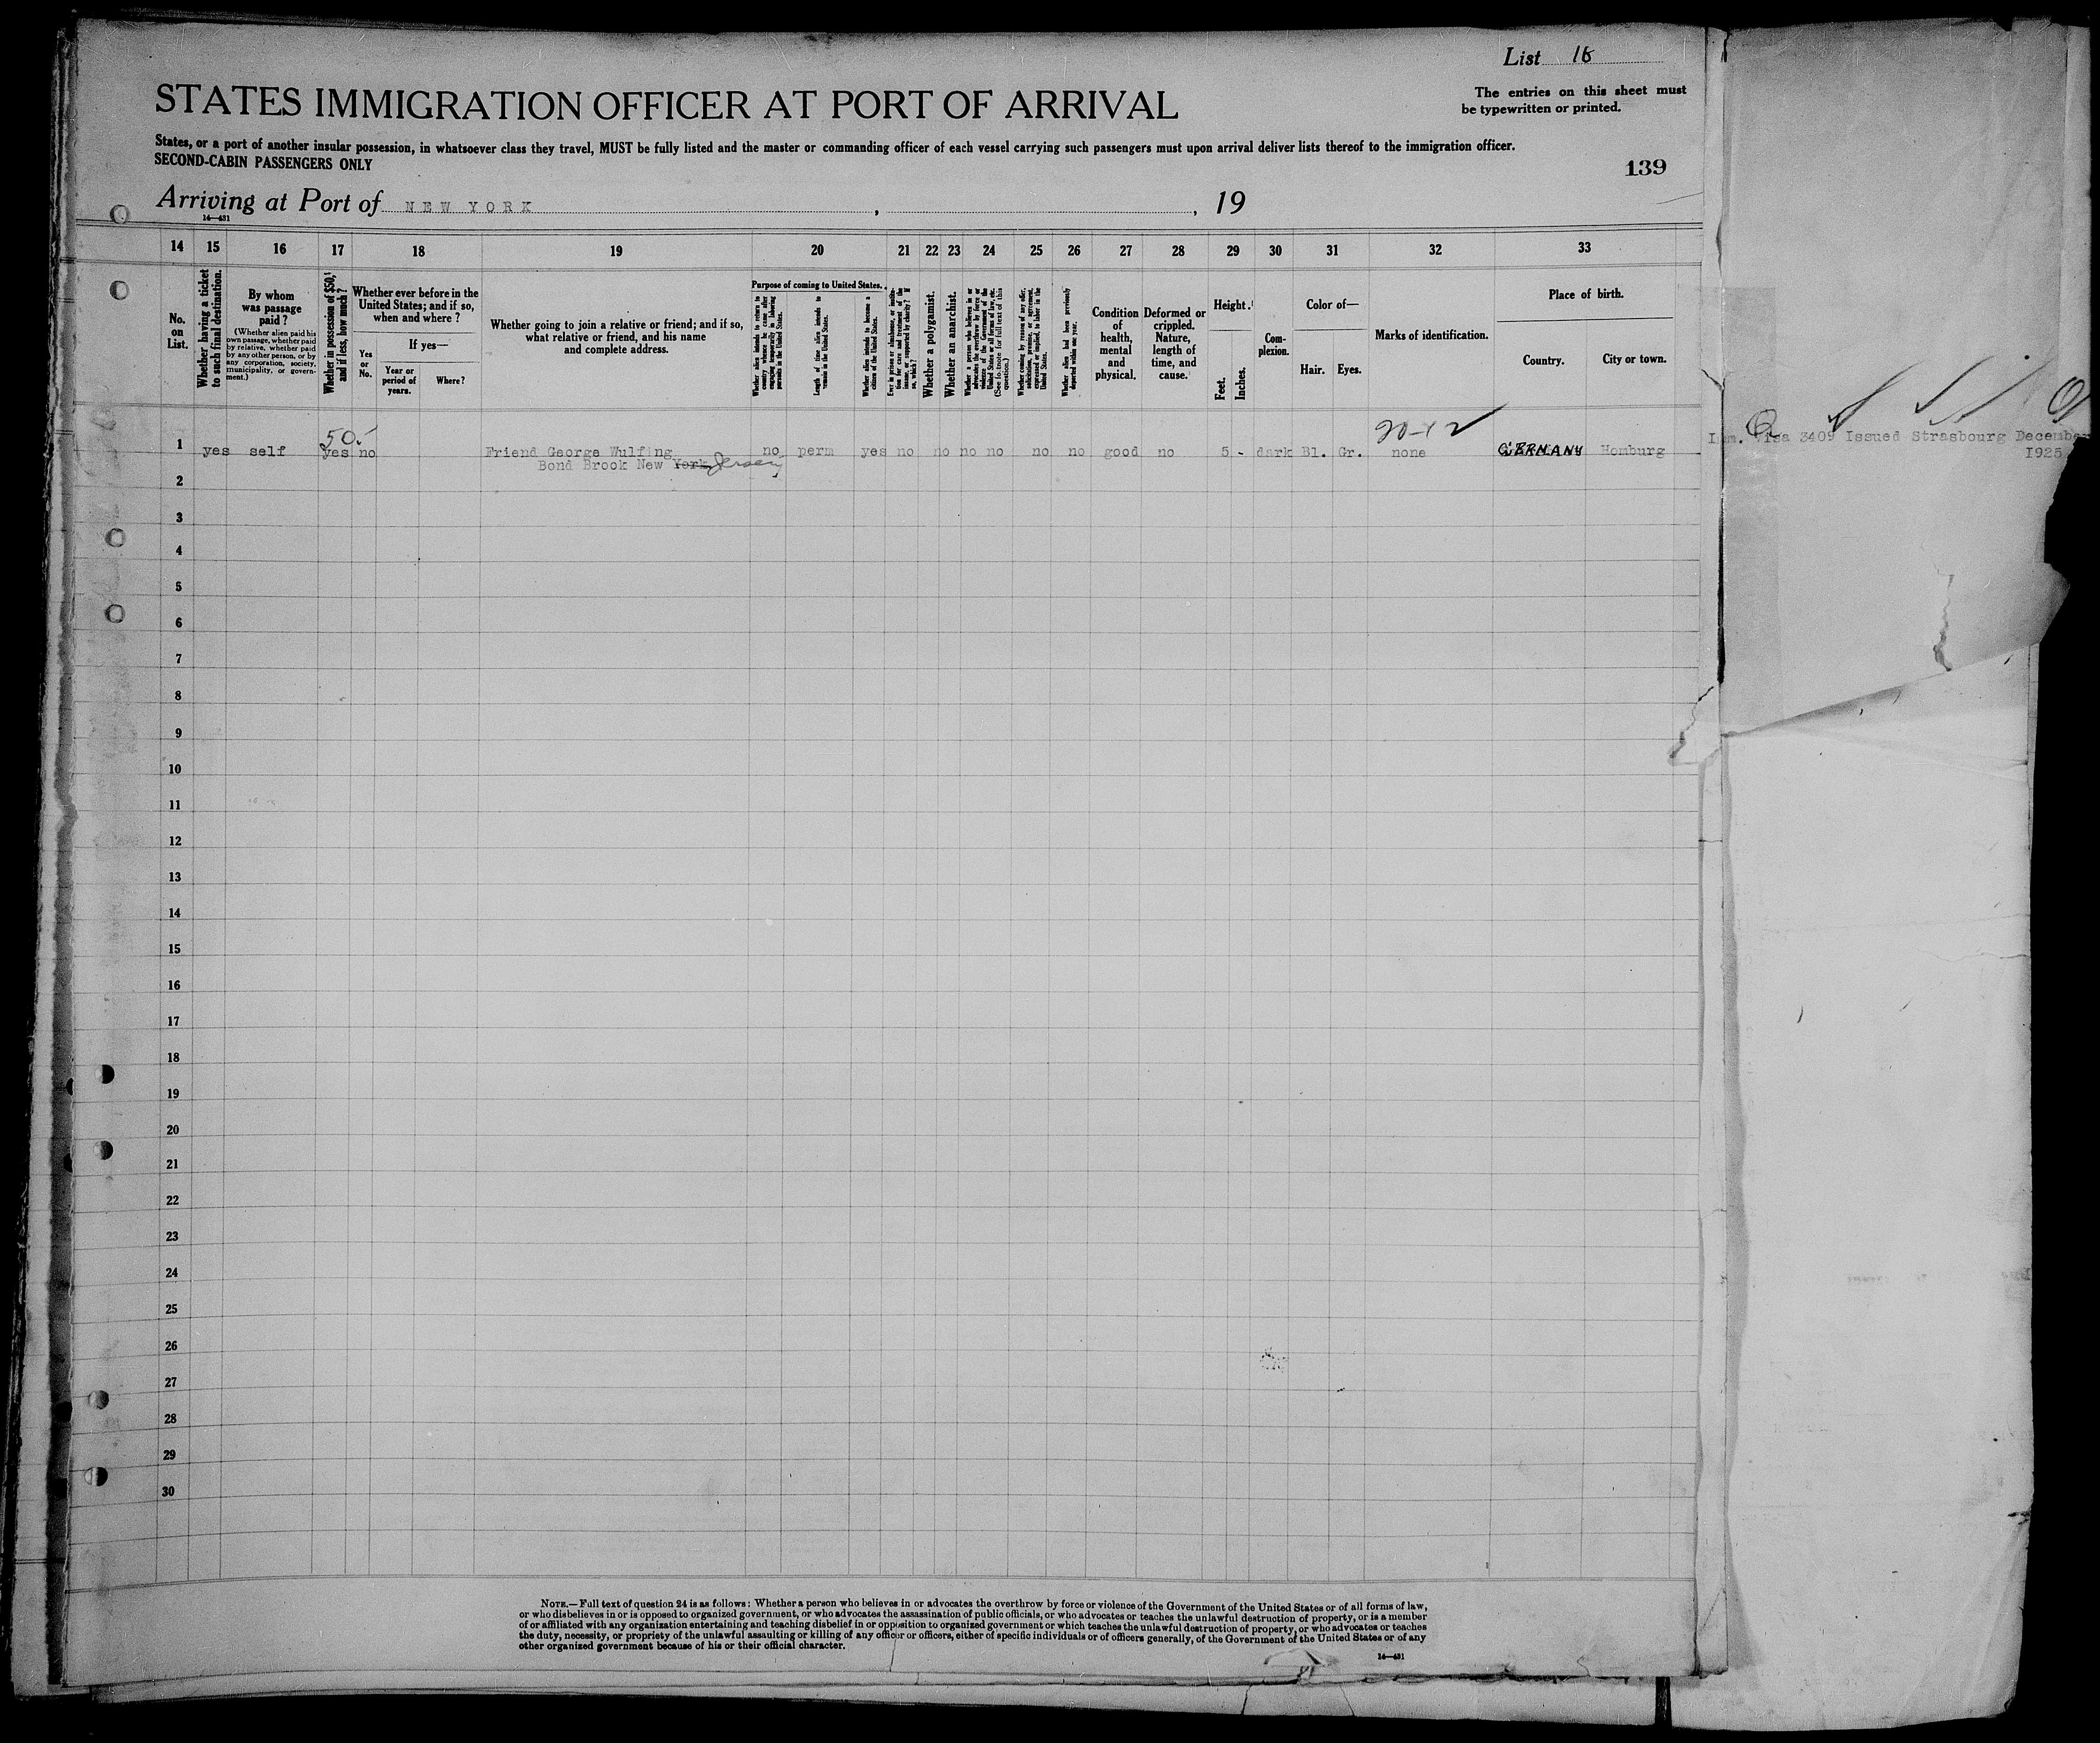 List 18
STATES IMMIGRATION OFFICER AT PORT OF ARRIVAL
The entries on this sheet must
be typewritten or printed.
States, or a port of another insular possession, in whatsoever class they travel, MUST be fully listed and the master or commanding officer of each vessel carrying such passengers must upon arrival deliver lists thereof to the immigration officer.
SECOND-CABIN PASSENGERS ONLY
139
Arriving at Port of NEW YORK , , 19
14—431
14 15 16 17 18 19 20 21 22 23 24 25 26 27 28 29 30 31 32 33
No. on List.
Whether having a ticket to such final destination.
By whom was passage paid?
(Whether alien paid his own passage, whether paid by relative, whether paid by any other person, or by any corporation, society, municipality, or government.)
Whether in possession of $50, and if less, how much?
Whether ever before in the United States; and if so, when and where?
Yes or No.
If yes—
Year or period of years.
Where?
Whether going to join a relative or friend; and if so, what relative or friend, and his name and complete address.
Purpose of coming to United States.
Whether alien intends to return to country whence he came after engaging temporarily in laboring pursuits in the United States.
Length of time alien intends to remain in the United States.
Whether alien intends to become a citizen of the United States.
Ever in prison or almshouse, or institution for care and treatment of the insane, or supported by charity? If so, which?
Whether a polygamist.
Whether an anarchist.
Whether a person who believes in or advocates the overthrow by force or violence of the Government of the United States or all forms of law, etc. (See footnote for full text of this question.)
Whether coming by reason of any offer, solicitation, promise, or agreement, expressed or implied, to labor in the United States.
Whether alien had been previously deported within one year.
Condition of health, mental and physical.
Deformed or crippled. Nature, length of time, and cause.
Height.
Feet. Inches.
Complexion.
Color of—
Hair. Eyes.
Marks of identification.
Place of birth.
Country. City or town.
50.-
20-12
1 yes self yes no Friend George Wulfing no perm yes no no no no no no good no 5 - dark Bl. Gr. none GERMANY Homburg
Bond Brook New York Jersey
Im. Visa 3409 Issued Strasbourg December
1925
2
3
4
5
6
7
8
9
10
11
12
13
14
15
16
17
18
19
20
21
22
23
24
25
26
27
28
29
30
NOTE.—Full text of question 24 is as follows: Whether a person who believes in or advocates the overthrow by force or violence of the Government of the United States or of all forms of law,
or who disbelieves in or is opposed to organized government, or who advocates the assassination of public officials, or who advocates or teaches the unlawful destruction of property, or is a member
of or affiliated with any organization entertaining and teaching disbelief in or opposition to organized government or which teaches the unlawful destruction of property, or who advocates or teaches
the duty, necessity, or propriety of the unlawful assaulting or killing of any officer or officers, either of specific individuals or of officers generally, of the Government of the United States or of any
other organized government because of his or their official character.
14—431